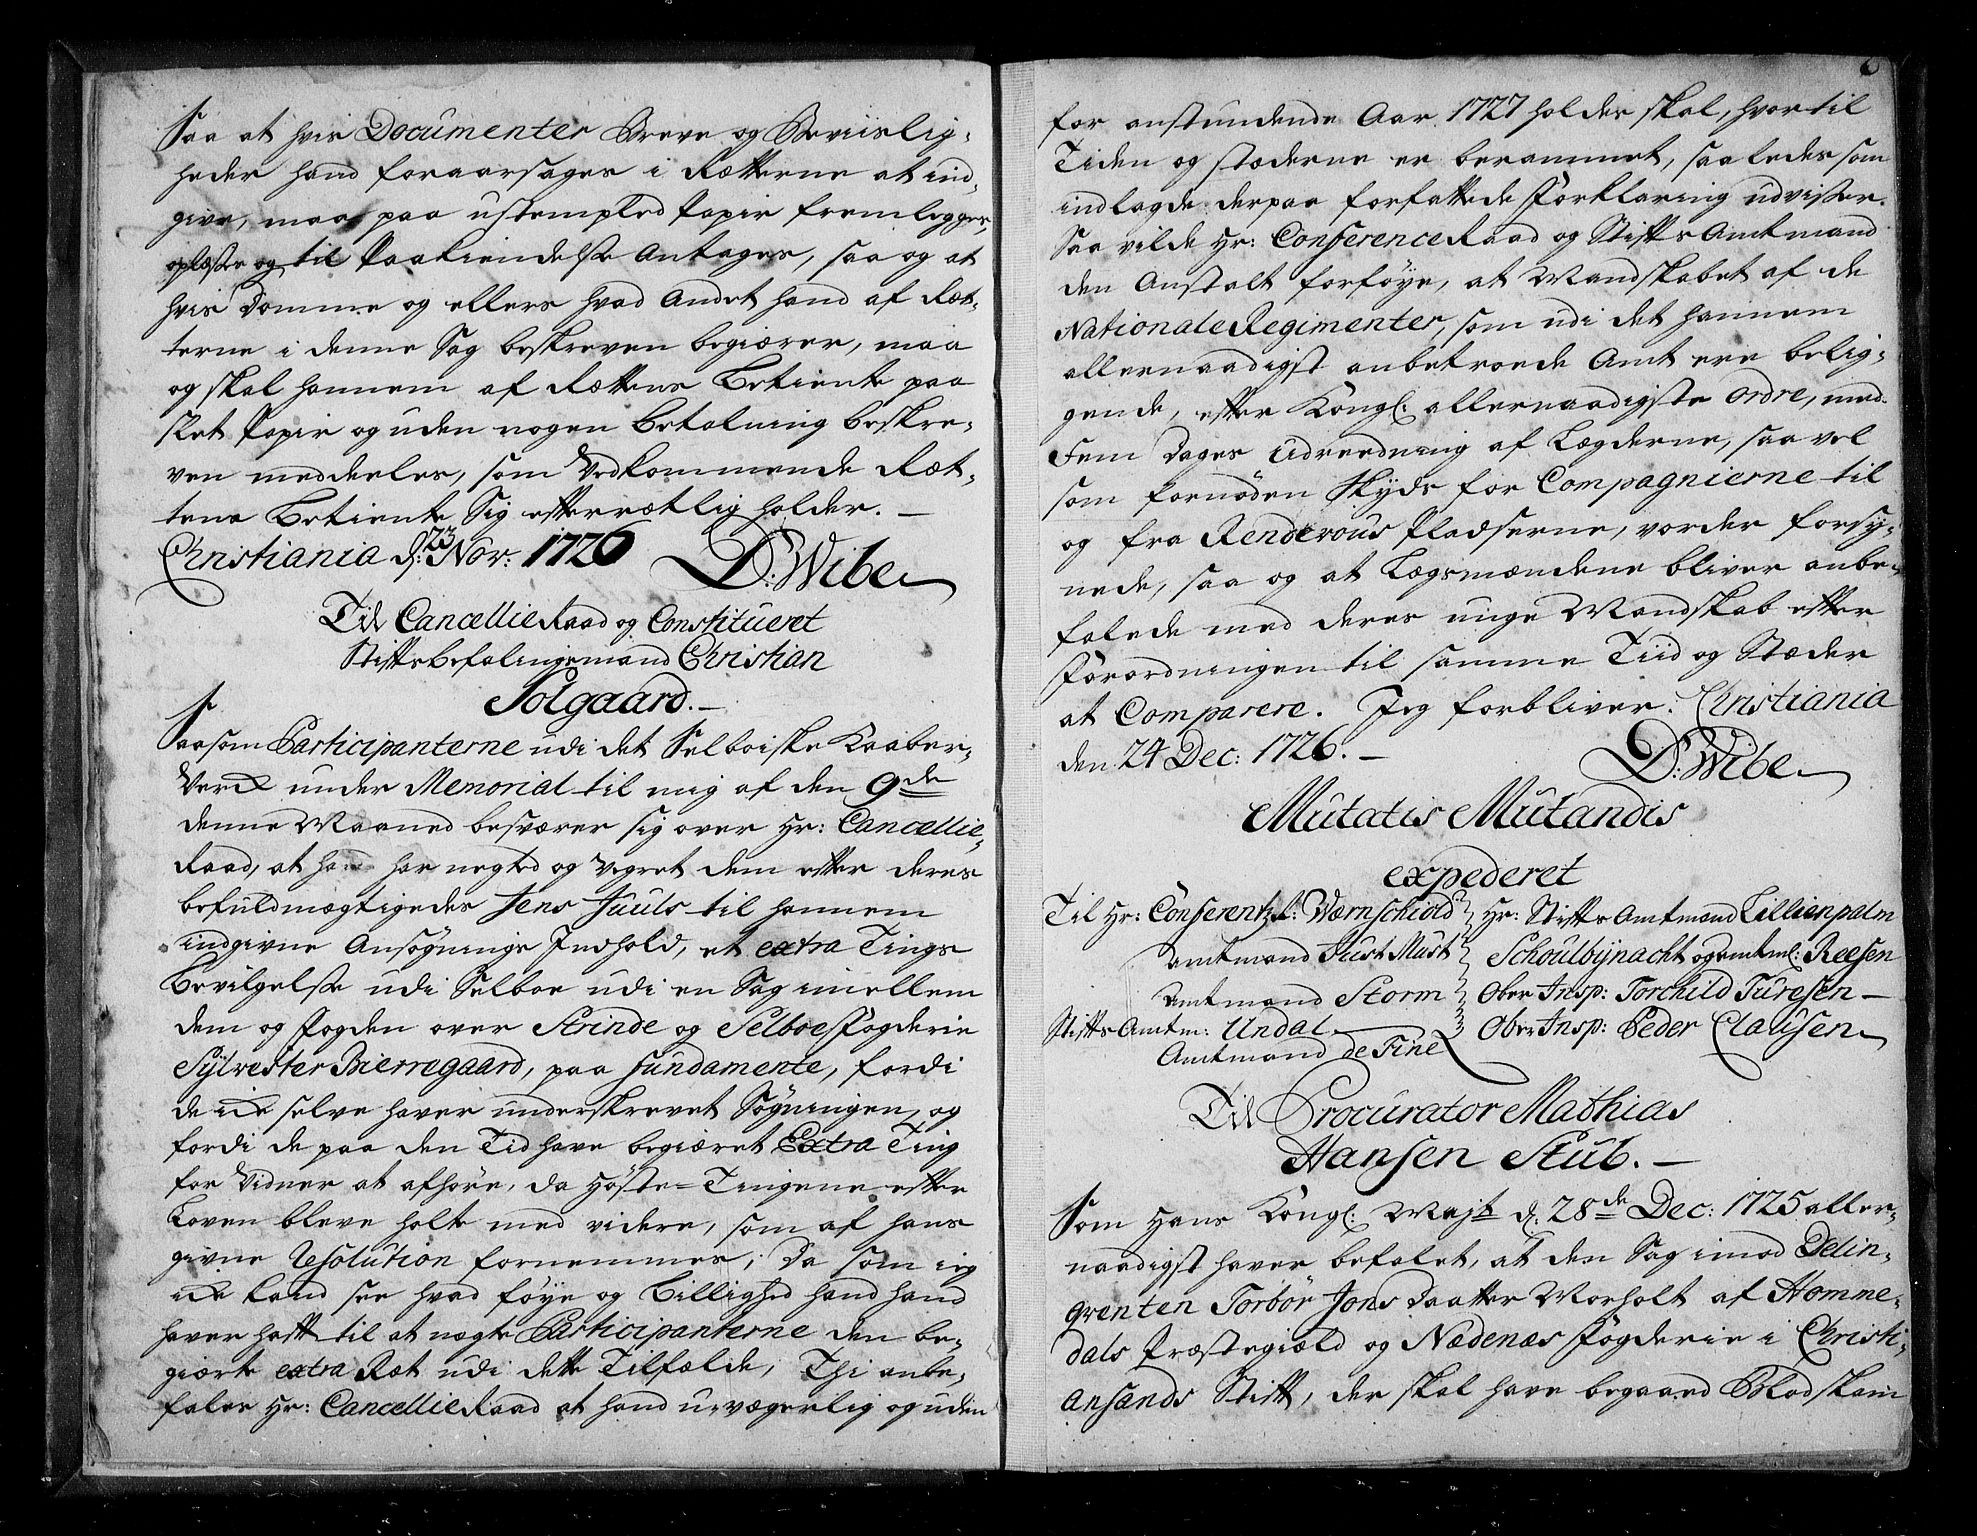 Saa at hvis Documenter Breve og Beviislig-
heder hand foraarsages i Rætterne at ind-
give, maa paa ustempled Papir fremlegges,
oplæste og til Paakiendelse Antages, saa og at
hvis Domme og ellers hvad Andet hand af Ræt-
terne i denne Sag beskreven begiærer, maa
og skal hannem af Rættens Betiente paa
slet Papir og uden nogen Betalning beskre-
ven meddeeles, som Vedkommende Ræt-
tens Betiente Sig efterrætlig holder. —
Christiania d: 23 Nov: 1726 D: Wibe
Til Cancellie Raad og Constitueret
Stiftsbefalingsmand Christian
Solgaard. —
Saasom Participanterne udi det Selboiske Kaaber-
Verck under Memorial til mig af den 9de
denne Maaned besværer sig over Hr: Cancellie-
Raad, at hand har negted og Vegret dem efter deres
befuldmægtigedes Jens Juuls til hannem
indgivne Ansøgnings Indhold, et extra Tings
Bevilgelse udi Selboe udi en Sag imellem
dem og Fogden over Strinde og Selboe Fogderie
Sylvester Bierregaard, paa fundamente, fordi
de icke selve haver underskrevet Søgningen, og
fordi de paa den Tid have begiæret Extra Ting
for Vidner at afhøre, da Høste-Tingene efter
Loven bleve holte med videre, som af hans
givne Resolution fornemmes; Da som ieg
icke kand see hvad føye og Billighed hand hand
haver haft til at nægte Participanterne den be-
giærte extra Ræt udi dette Tilfælde; Thi anbe-
faler Hr: Cancellie Raad at hand u-vægerlig og uden
6
for anstundende Aar 1727 holdes skal, hvortil
Tiden og stæderne er berammet, saaledes som
indlagde derpaa forfattede Forklaring udviser.
Saa vilde Hr: Conference Raad og Stifts Amtmand
den Anstalt forføye, at Mandskabet af de
Nationale Regimenter, som udi det hannem
allernaadigst anbetroede Amt ere belig-
gende, efter Kongl: allernaadigste Ordre, med
Fem Dages Udreedning af Lægderne, saavel
som fornøden Skyds for Compagnierne til
og fra Rendevous Pladserne, vorder forsy-
nede, saa og at Lægsmændene bliver anbe-
falede med deres unge Mandskab efter
Forordningen til samme Tiid og Stæder
at Comparere. Jeg forbliver. Christiania
den 24 Dec: 1726. — D: Wibe
Mutatis Mutandis
expederet
Til Hr: Conferentz R: Wærnschiold Hr: Stifts Amtmand Lillienpalm
Amtmand Just Must Schoulbynacht og Amtm: Reesen
Amtmand Storm Ober Insp: Torchild Turesen —
Stifts Amtm: Undal Ober Insp: Peder Clausen
Amtmand de Fine
Til Procurator Mathias
Hansen Stub. —
Som Hans Kongl: Mayt d. 28de Dec: 1725 aller-
naadigst haver befalet, at den Sag imod Delin-
qventen Torbør Jons Daatter Morholt af Homme-
dals Præstegiæld og Nedenæs Fogderie i Christi-
ansands Stift, der skal have begaaed Blodskam